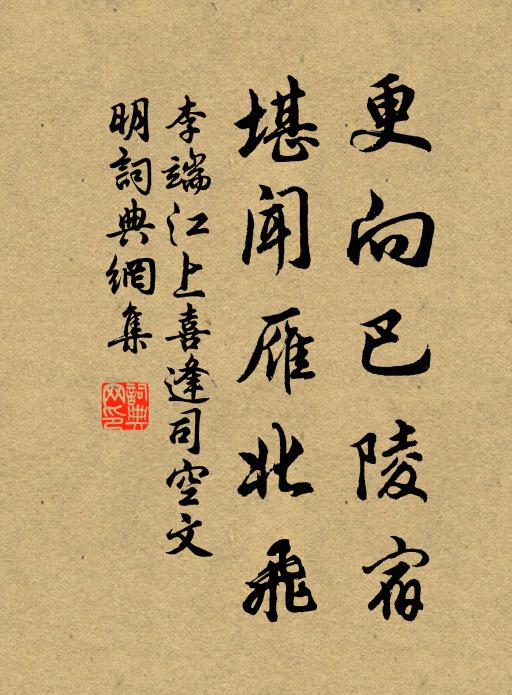 更向巴陵宿
堪聞雁北飛
李端江上喜逢司空文
明詞典網集
詞典
网印